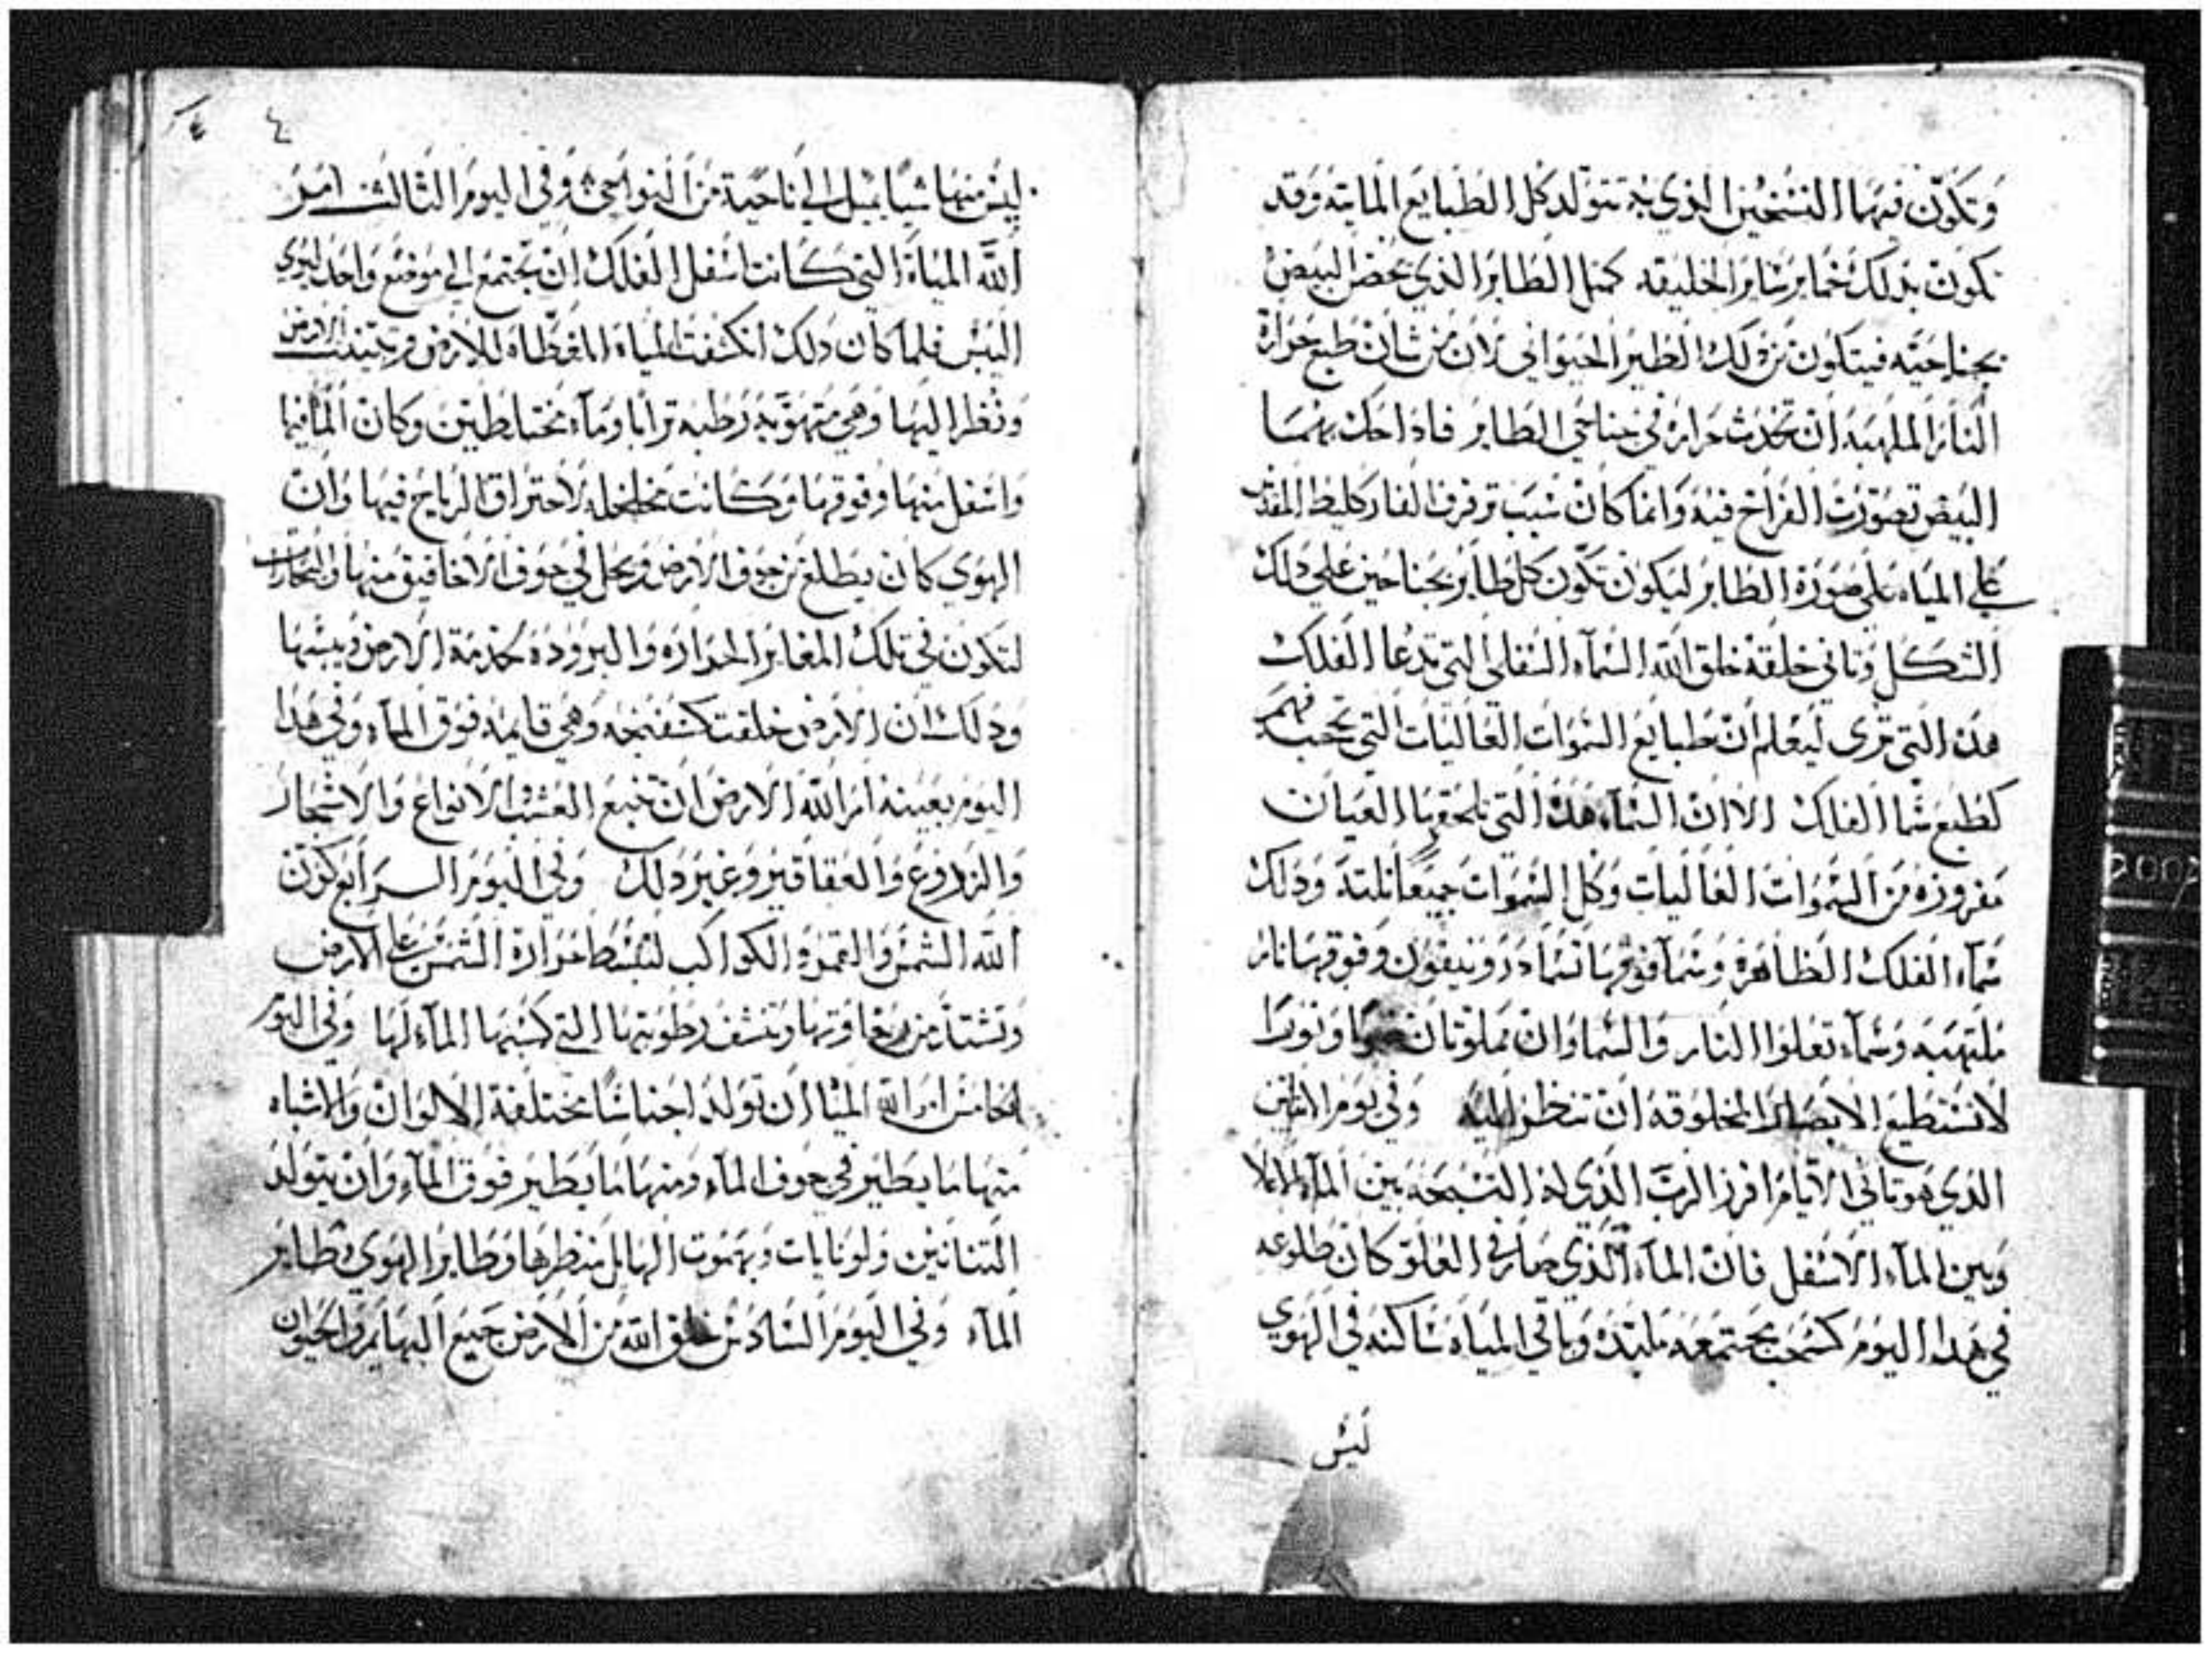 وتكون فيهما التسخين الذي به تتولد كل الطبايع المايته وقد
تكون بذلك خماير ساير الخليقه كمثل الطاير الذي يحضن البيض
بجناحيه فيتكون من ذلك الطير الحيواني لان من شان طبع حرارة
النار الملهبه ان تحدث حراره في جناحي الطاير فاذا حك بهما
البيض تصورت الفراخ فيه وانما كان سبب ترفرف الفارقليط المقدس
علي المياه علي صورة الطاير ليكون تكون كل طاير بجناحين علي ذلك
الشكل وثاني خلقة خلق الله السماء السفلي التي تدعا الفلك
هذه التي تري ليعلم ان طبايع السموات العاليات التي تحب فهمر
كطبع سما الفلك الا ان السماء هذه التي يلحقها العيان
مفروزه من السموات العاليات وكل السموات جميعا ثلثة وذلك
سماء الفلك الظاهرة وسما فوقها تسما دروتيقون وفوقها نار
ملتهبه وسماء تعلوا النار والسماوان مملوتان ضوا ونورا
لا تستطيع الابصار المخلوقه ان تنظر اليه وفي يوم الاثنين
الذي هو ثاني الايام افرز الرب الذي له التسبحه بين الماء الاعلا
وبين الماء الاسفل فان الماء الذي صار في العلو كان طلوعه
في هذا اليوم كسحب مجتمعه ملبده وباقي المياه ساكنه في الهوي
ليس
٤
ليس منها شيا يسيل الي ناحية من النواحي وفي اليوم الثالث امر
الله المياة التي كانت اسفل الفلك ان تجتمع الي موضع واحد ليري
اليبس فلما كان ذلك انكشفت المياه المغطاه للارض وحينيذ الارض
ونظر اليها وهي متهويه رطبه ترابا وماء مختلطين وكان الما فيها
واسفل منها وفوقها وكانت متخلخله لاختراق الرياح فيها وان
الهوي كان يطلع من جوف الارض ويحل في جوف الاخافيق منها والمغارات
لتكون في تلك المغاير الحراره والبروده لخدمة الارض ويبسها
وذلك ان الارض خلقت كسفنجه وهي قايمه فوق الماء وفي هذا
اليوم بعينه امر الله الارض ان تنبع العشب الانواع والاشجار
والزروع والعقاقير وغير ذلك وفي اليوم الرابع كون
الله الشمس والقمر والكواكب لتبسط حرارة الشمس علي الارض
وتشتد من رخاوتها وتنشف رطوبتها التي كسبها الماء لها وفي اليوم
الخامس امر الله المياه ان تولد اجناسا مختلفة الالوان والاشباه
منها ما يطير في جوف الماء ومنها ما يطير فوق الماء وان يتولد
التنانين ولوياتان وبهموت الهايل منظرها وطاير الهوي وطاير
الماء وفي اليوم السادس خلق الله من الارض جميع البهايم والحيوان